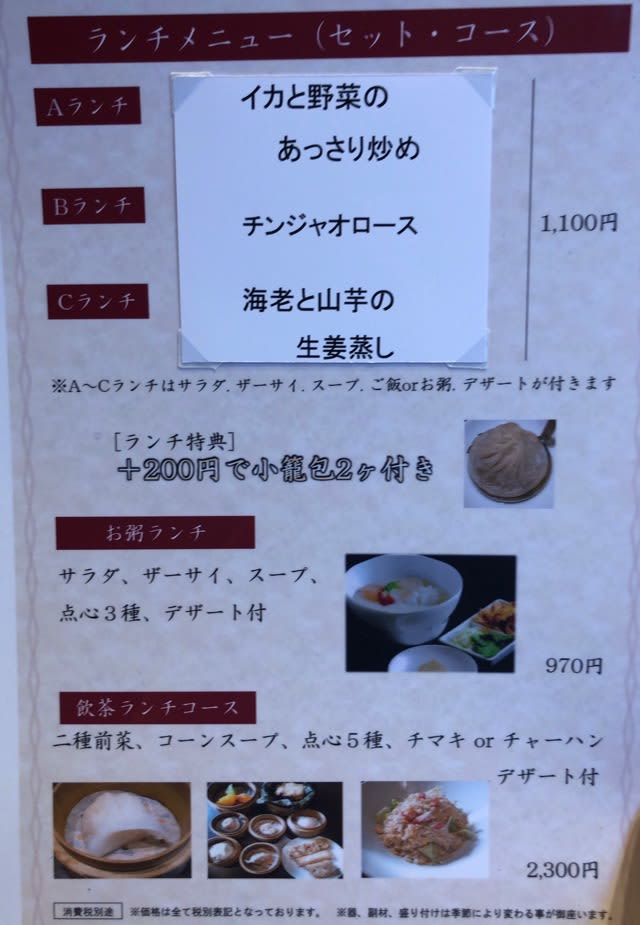 ランチメニュー（セット・コース）
Aランチ
イカと野菜の
あっさり炒め
Bランチ
チンジャオロース
1,100円
Cランチ
海老と山芋の
生姜蒸し
※A～Cランチはサラダ. ザーサイ. スープ. ご飯orお粥. デザートが付きます
［ランチ特典］
＋200円で小籠包2ヶ付き
お粥ランチ
サラダ、ザーサイ、スープ、
点心３種、デザート付
970円
飲茶ランチコース
二種前菜、コーンスープ、点心５種、チマキ or チャーハン
デザート付
2,300円
消費税別途 ※価格は全て税別表記となっております。 ※器、副材、盛り付けは季節により変わる事が御座います。